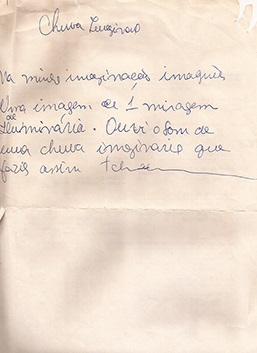 Chuva Imaginaria
Na minha imaginação imaginei
Uma imagem de 1 miragem
de
iluminária. Ouvi o som de
uma chuva imaginaria que
fazia assim tchaa